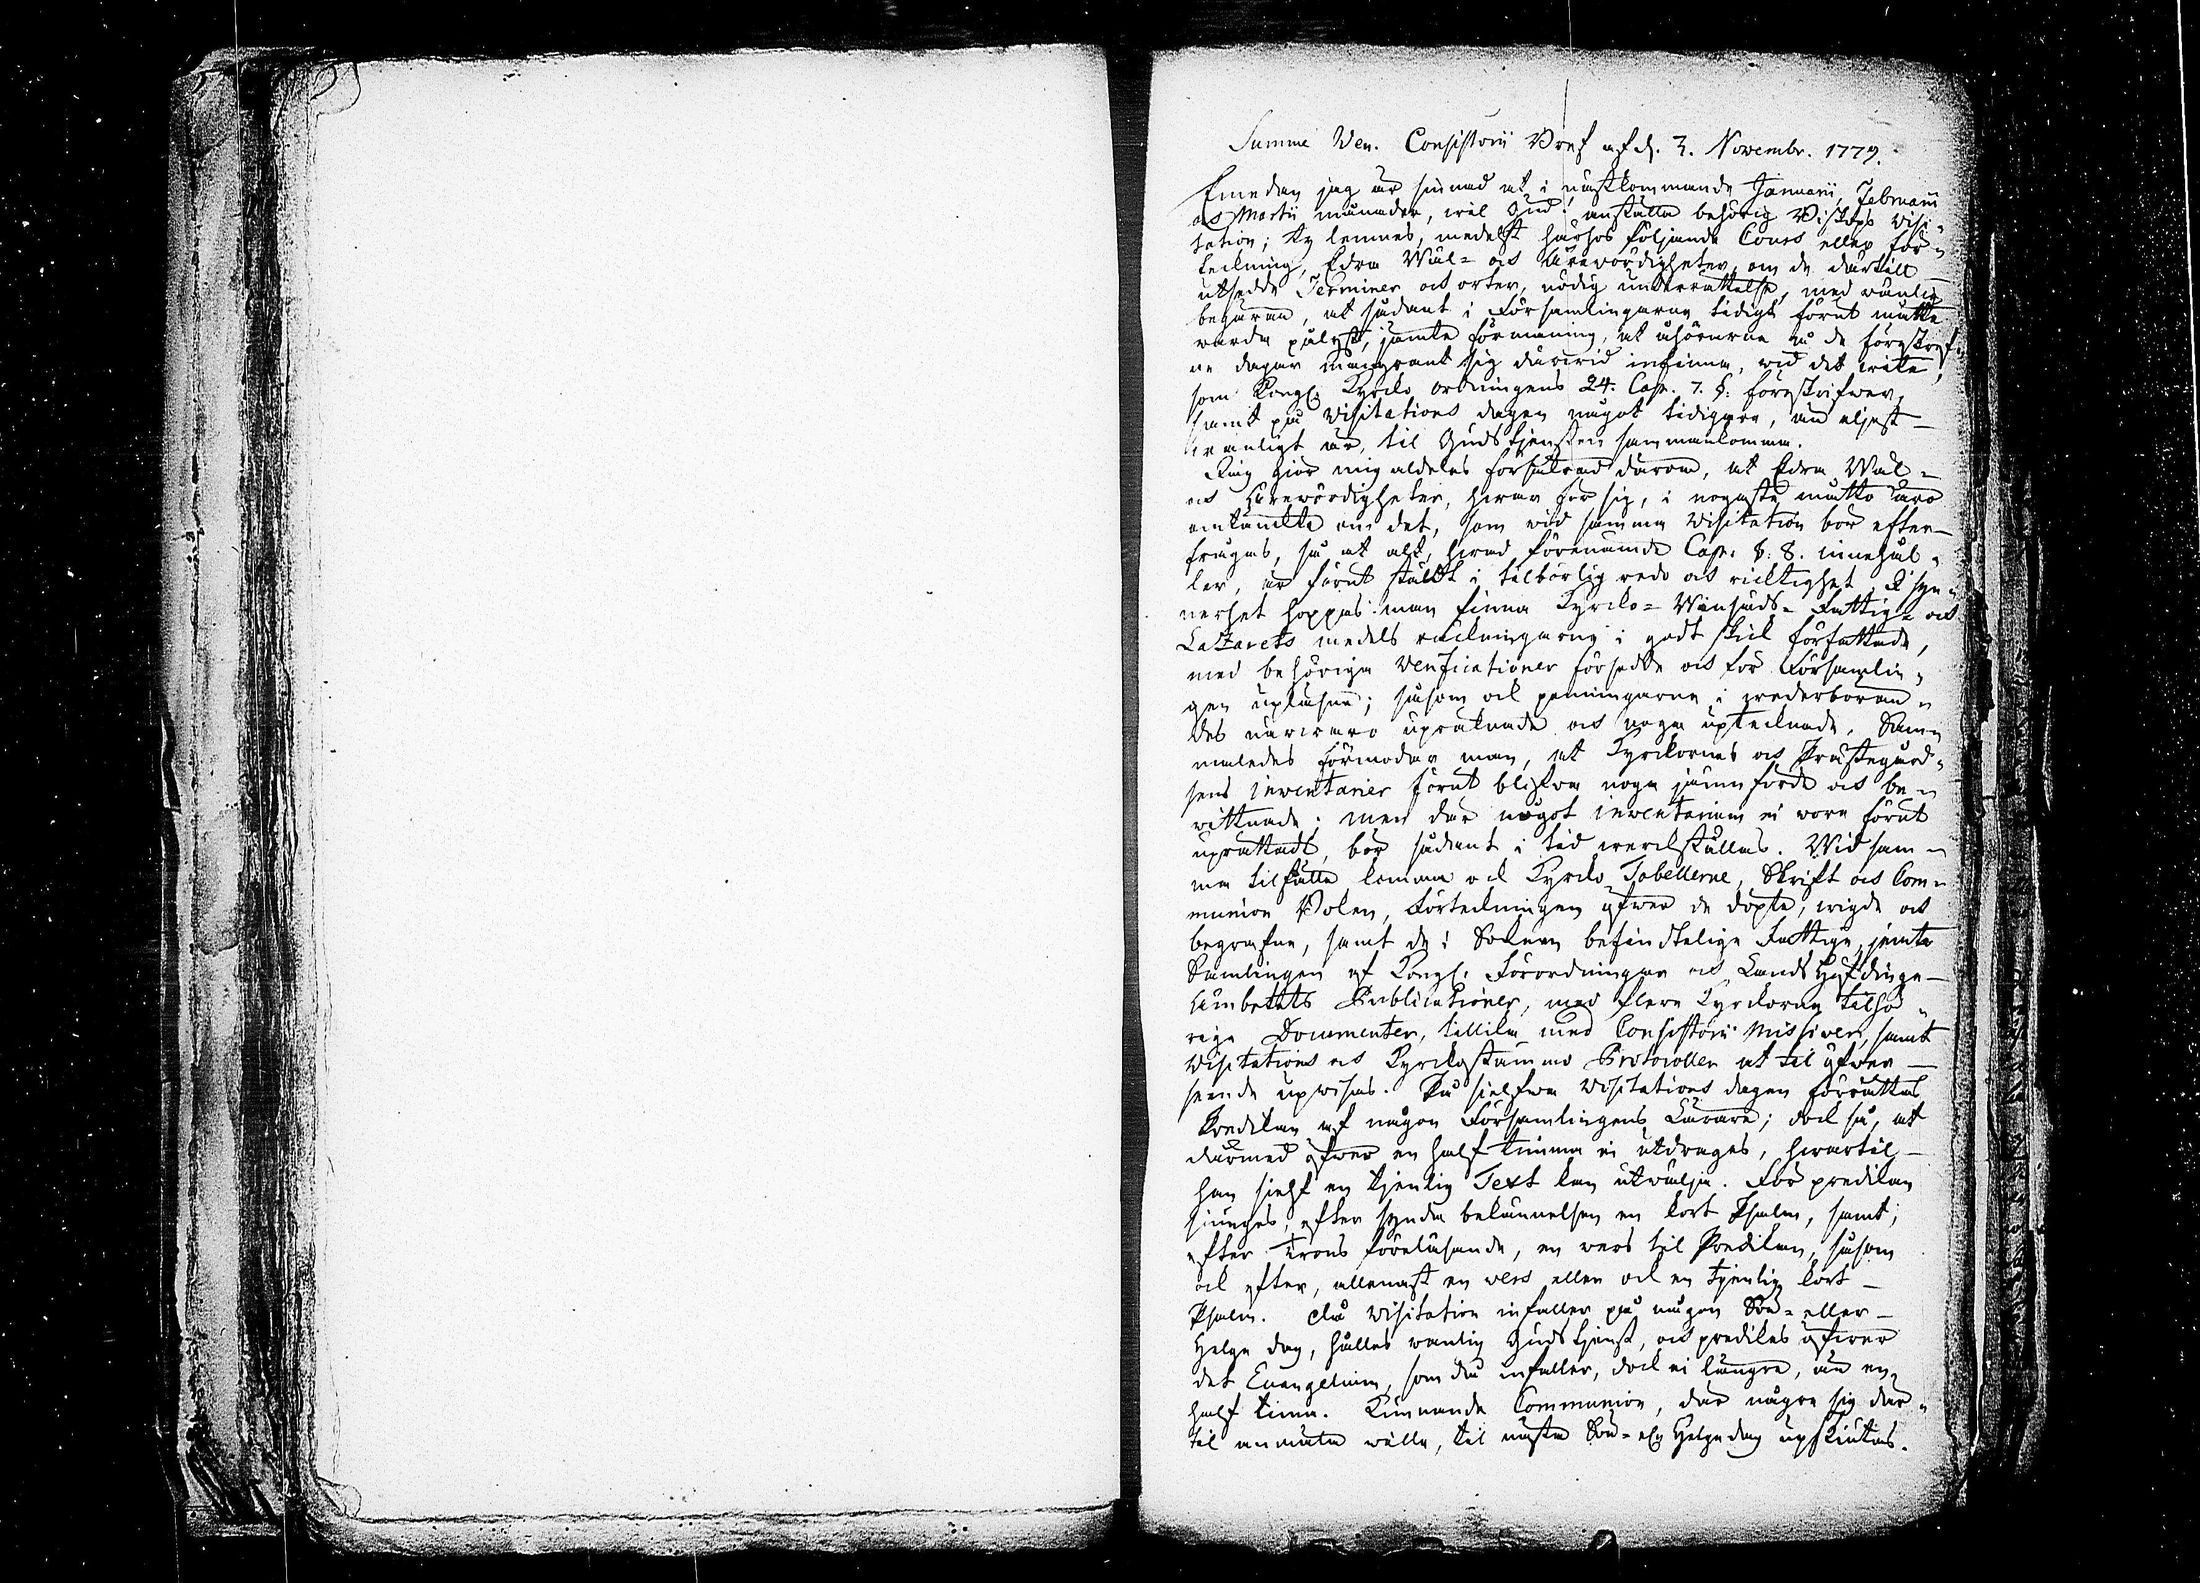 Summe Ven. Consistorii Bref af d. 3. Novembr. 1779.
Emedan jag är sinnad at i nästkommande Januarii, Februarii
och Martii månader, wil Gud! anställa behörig Biskops Visi-
tation; Ty lemnes, medelst härhos följande Cours eller för-
teckning, Edra Wäl- och Ärewördigheter om de därtill
utsedde Terminer och orter, nödig underrättelse, med wänlig
begäran, at sådant i Församlingarna tidigt förut måtte
warda pålyst, jämte förmaning, at åhörarne på de föreskref-
ne dagar mangrant sig därwid infinna, wid det wite,
som Kongl. Kyrcko ordningens 24. Cap. 7. §. föreskrifwer,
samt på Visitations dagen något tidigare, än eljest
wanligt är, til Gudstjensten sammankomma.
Ock giör mig aldeles försäkrad därom, at Edra Wäl-
och Ärewördigheter, hwar för sig, i nogaste måtto äro
omtänkte om det, som wid samma Visitation bör efter-
frågas, så at alt, hwad förenämde Cap. §. 8. innehål-
ler, är förut stäldt i tilbörlig redo och richtighet. I syn-
nerhet hoppas man finna Kyrcko- Winsäds- Fattig- och
Lazarets medels räckningarna i godt skick författade,
med behöriga Verificationer försedde och för Församlin-
gen upläsne; såsom ock penningarne i wederböran-
des närwaro upräknade och noga uptecknade. Sam-
maledes förmodar man, at Kyrckornes och Prästegård-
sens inventarier förut blifwa noga jämnförde och be-
wittnade; men där något inventarium ei wore förut
uprättadt, bör sådant i tid werckställas. Wid sam-
ma tilfälle komma ock Kyrcko Tabellerne, Skrift och Com-
munion Boken, Förteckningen öfwer de döpte, wigde och
begrafne, samt de i Socknen befindtelige Fattige, jemte
Samlingen af Kongl. Förordningar och Lands Höfdinge-
Embetets Publicationer, med flere Kyrckorne tilhö-
rige Documenter, tillika med Consistorii Missiver, samt
Visitations och Kyrckostämmo Protocoller at til öfwer-
seende upwisas. På sielfwa Visitations dagen förrättas
Predikan af någon Församlingens Lärare; dock så, at
därmed öfwer en half timma ei utdrages, hwartil
han sielf en tjenlig Text kan utwälja. För predikan
siunges, efter synda bekännelsen en kort Psalm, samt,
efter trons föreläsande, en vers til Predikan, såsom
ock efter, allenast en vers eller ock en tjenlig kort
Psalm. När Visitation infaller på någon Sön- eller
Helge dag, hålles wanlig Gudstjenst, och predikas öfwer
det Evangelium, som då infaller, dock ei längre, än en
half tima. Kunnande Communion, där någre sig där-
til anmäla wille, til nästa Sön- elr Helgedag upskiutas.